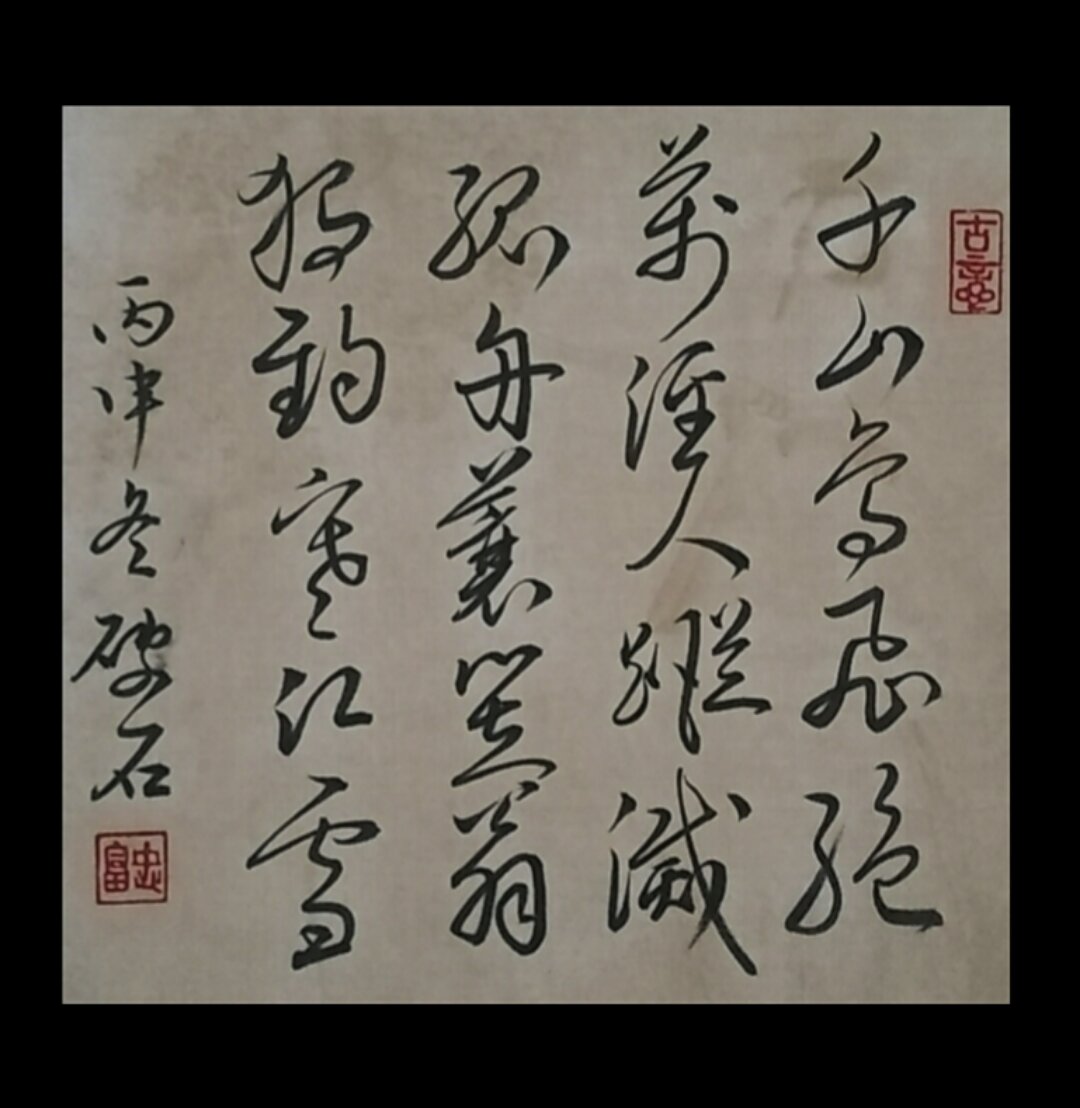 古意
千山鳥飛絕
萬徑人蹤滅
孤舟蓑笠翁
獨釣寒江雪
丙申冬破石